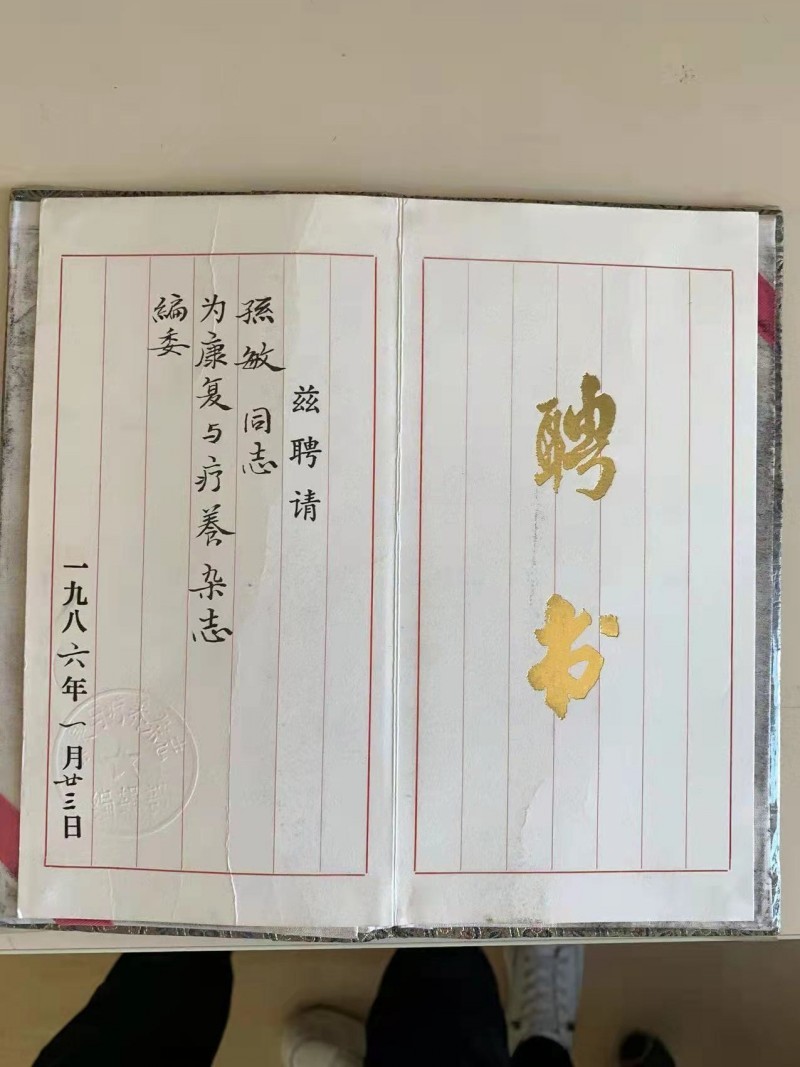 聘书
兹聘请
孫敏 同志
为康复与疗養杂志
編委
一九八六年一月廿三日
編輯部